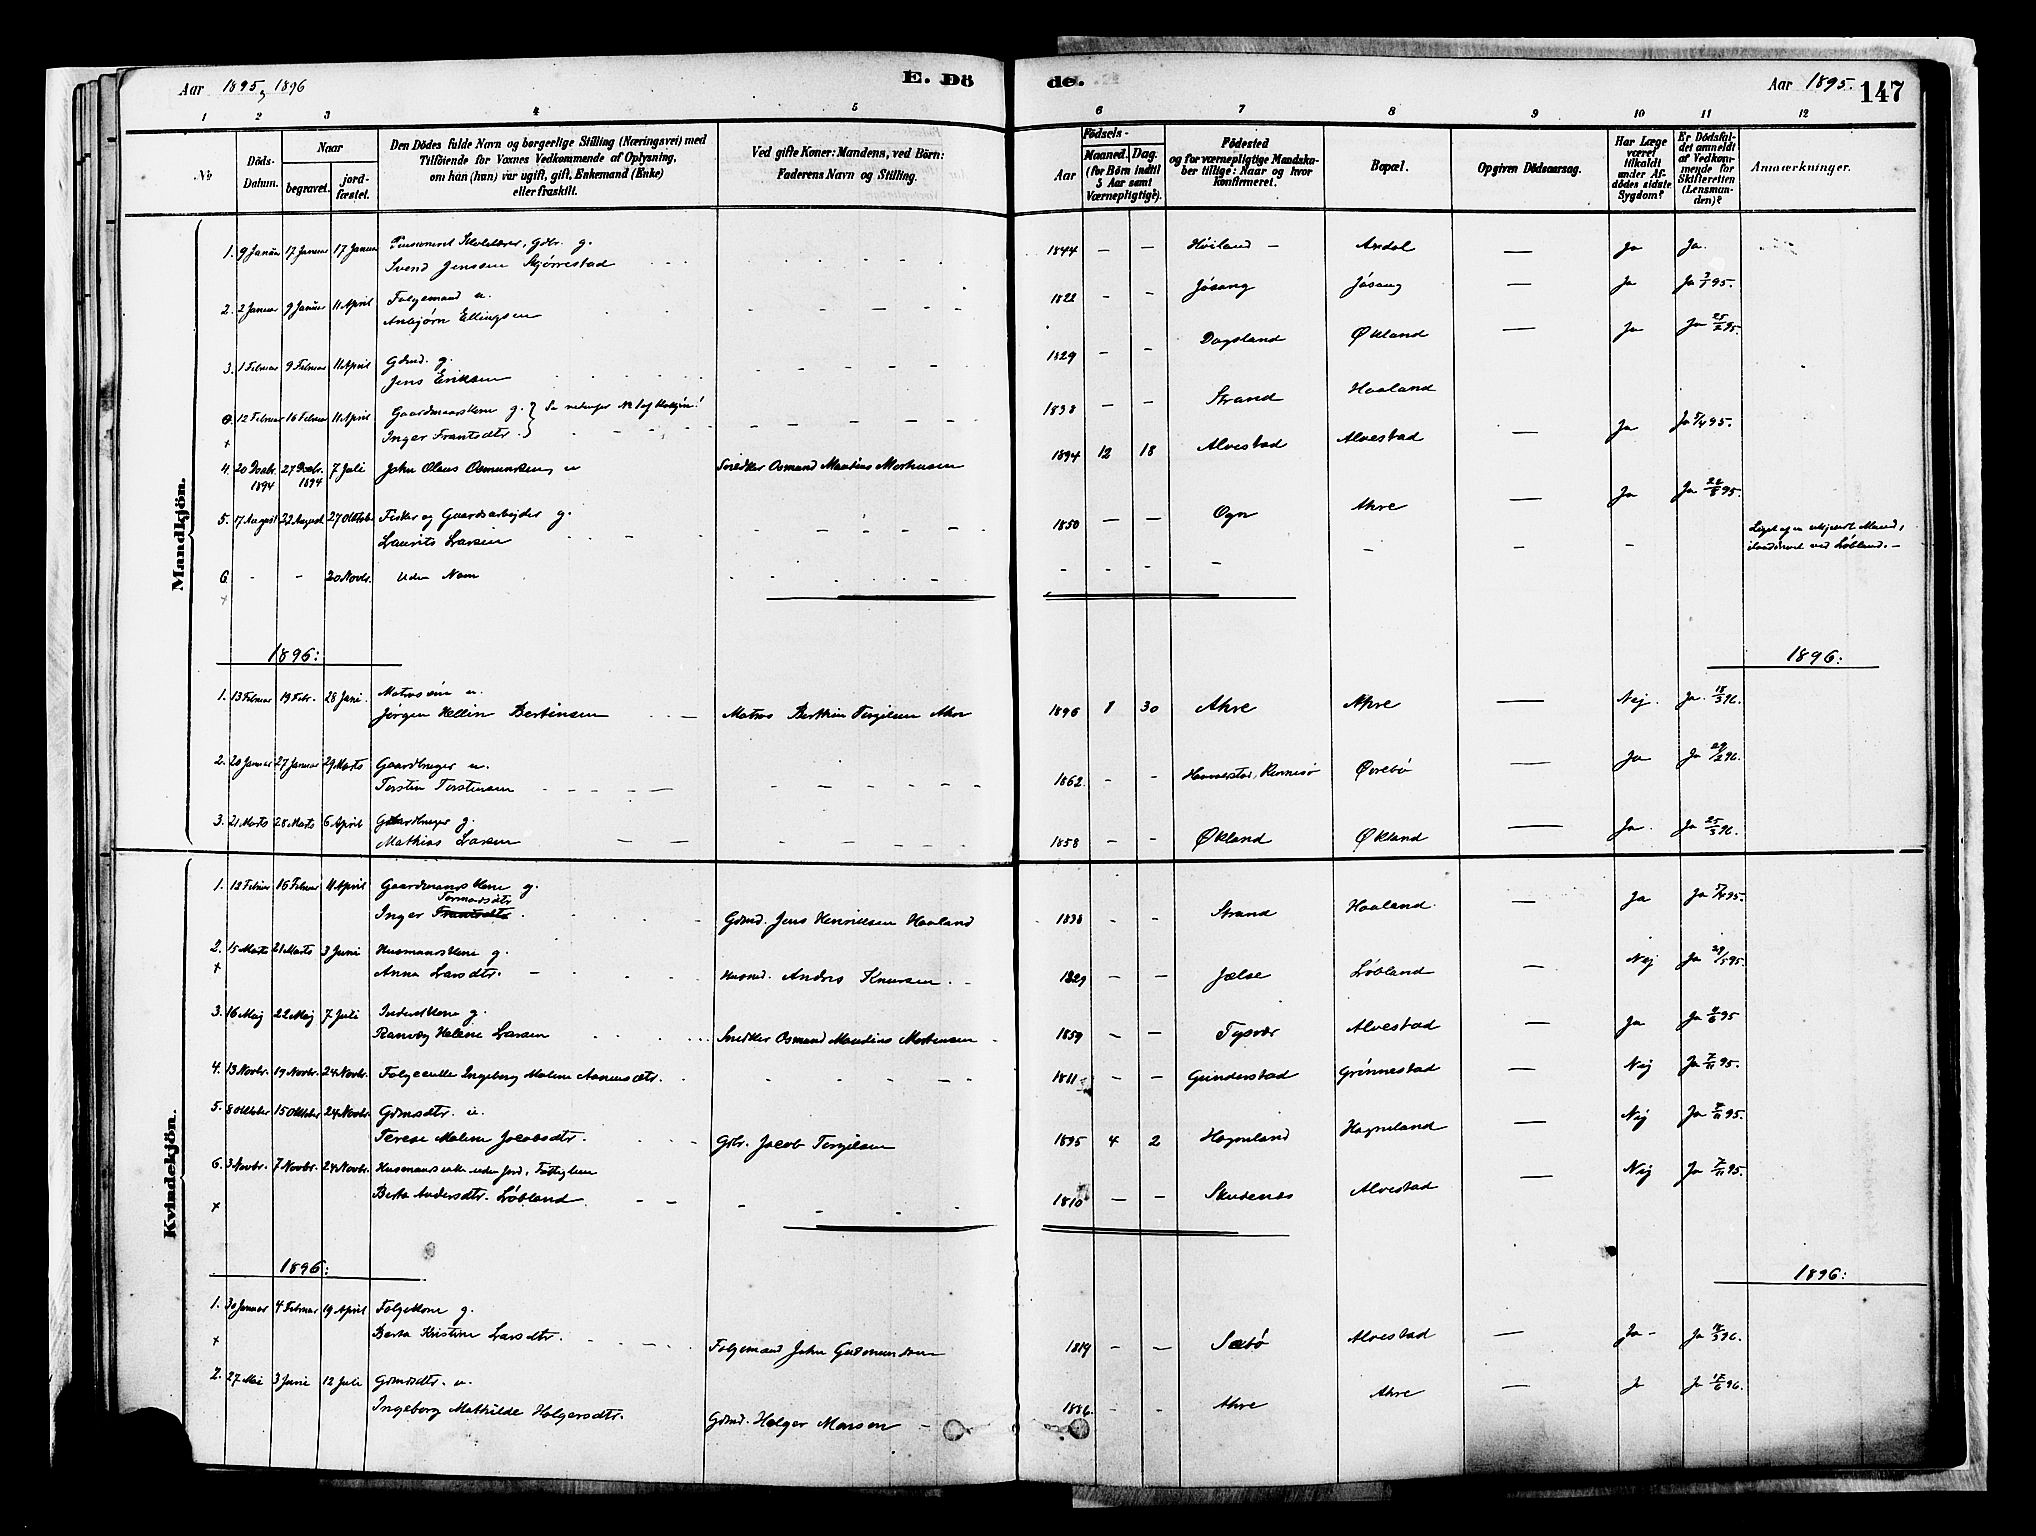 Aar 1895 og 1896
E. Dö
de.
Aar 1895.
147
1 2 3 4 5 6 7 8 9 10 11 12
No
Döds-Datum.
Naar
begravet.
jord-fæstet.
Den Dödes fulde Navn og borgerlige Stilling (Næringsvei) med
Tilföiende for Voxnes Vedkommende af Oplysning,
om han (hun) var ugift, gift, Enkemand (Enke)
eller fraskilt.
Ved gifte Koner: Mandens, ved Börn:
Faderens Navn og Stilling.
Födsels-
Aar
Maaned. Dag.
(for Börn indtil
5 Aar samt
Værnepligtige).
Födested
og for værnepligtige Mandska-
ber tillige: Naar og hvor
Konfirmeret.
Bopæl.
Opgiven Dödsaarsag.
Har Læge
været
tilkaldt
under Af-
dödes sidste
Sygdom?
Er Dödsfal-
det anmeldt
af Vedkom-
mende for
Skifteretten
(Lensman-
den)?
Anmærkninger.
Mandkjön.
1. 9 Januar 17 Januar 17 Januar Pensioneret Skolelærer, Gdbr. g.
Svend Jenssen Skjørrestad 1844 – – Høiland – Axdal — Ja Ja.
2. 2 Januar 9 Januar 11 April Folgemand u.
Anbjørn Ellingsen 1822 – – Jøsang Jøsang — Ja Ja 3/1 95.
3. 1 Februar 9 Februar 11 April Gdmd. g.
Jens Eriksen 1829 – – Dagsland Økland — Ja Ja 25/2 95.
12 Februar 16 Februar 11 April Gaardmandskone g. } Se nedenfor No 1 af Kvkjøn!
Inger Frantsdtr. } 1838 – – Strand Haaland Ja
4. 20 Decbr. 1894 27 Decbr. 1894 7 Juli John Olaus Osmundsen u Snedker Osmund Maudius Mortensen 1894 12 18 Alvestad Alvestad —
5. 17 August 22 August 27 Oktober Fisker og Gaardsarbejder g.
Laurits Larsen 1850 – – Ogn Ahre — Ja
6. – – 20 Novbr. Uden Navn
Liget af en ukjendt Mand,
ilanddrevet ved Løbland. –
1896:
1896:
1. 13 Februar 19 Febr. 28 Juni Matrossøn u.
Jørgen Hellin Bertinsen Matros Berthin Tergilsen Ahre 1896 1 30 Ahre Ahre — Nej. Ja. 18/3 96.
2. 20 Januar 27 Januar 29 Marts Gaardbruger u.
Torstin Torstensen 1862 – – Rennesø Øvrebø — Ja Ja 29/2 96.
3. 21 Marts 28 Marts 6 April Gaardbruger g.
Mathias Larsen 1858 – – Økland Økland — Ja. Ja 25/3 96.
Kvindekjön.
1. 12 Februar 16 Februar 11 April Gaardmandskone g.
Tormodsdtr
Inger Frantsdtr. Gdmd. Jens Henriksen Haaland 1838 – – Strand Haaland — Ja
2. 15 Marts 21 Marts 3 Juni Husmandskone g.
Anna Larsdtr. Husmd. Andres Knutsen. 1829 – – Jælse Løbland — Nej Ja 29/5 95.
3. 16 Maj 22 Maj 7 Juli Inderstkone g.
Ranveg Helene Larsen Snedker Osmund Maudius Mortensen 1859 – – Tysvær Alvestad — Ja
4. 13 Novbr. 19 Novbr. 24 Novbr. Folgeenke Ingeborg Malene Aanensdtr. 1811 – – Gunderstad Grønnestad — Nej
5. 8 Oktober 15 Oktober 24 Novbr. Gdmdsdtr. u.
Terese Malene Jacobsdtr. Gdbr. Jacob Tergilsen 1895 4 2 Hagneland Hagneland — Nej
6. 3 Novbr. 7 Novbr. 24 Novbr. Husmandsenke uden Jord, Fattiglem
Berta Andersdtr. Løbland. 1810 – – Skudenes Alvestad — Nej
1896:
1896:
1. 30 Januar 4 Februar 19 April Folgekone g.
Berta Kristine Larsdtr. Folgemand John Gudmundsen 1819 – – Sæbø Alvestad — Ja – Ja 18/3 96.
2. 27 Mai 3 Juni 12 Juli Gdmdsdtr. u.
Ingeborg Mathilde Holgersdtr. Gdmd. Holger Monsen 1886. – – Ahre Ahre — Ja